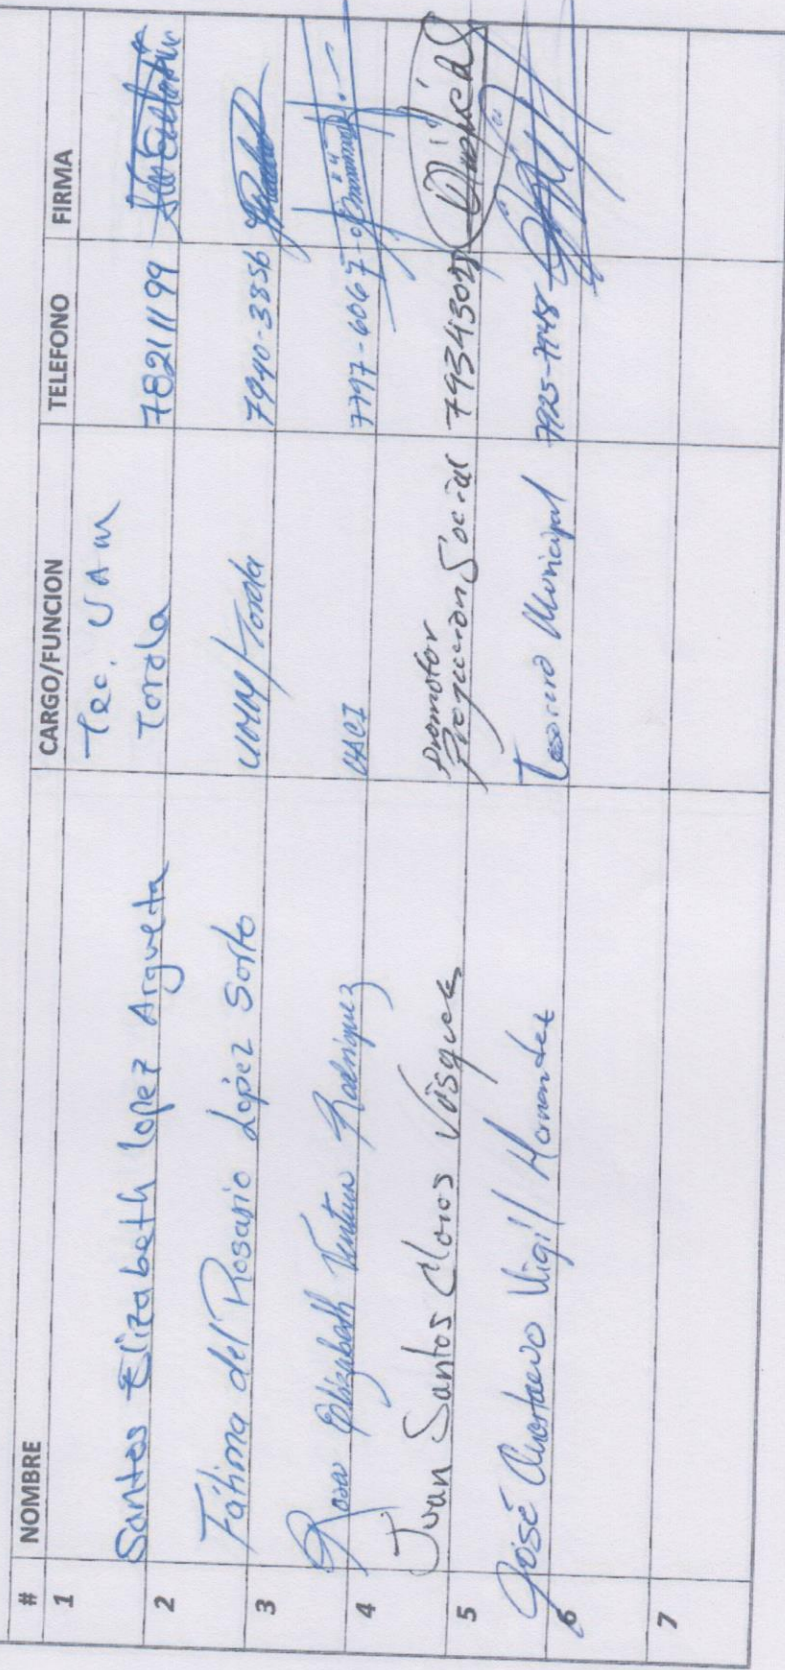 # NOMBRE CARGO/FUNCION TELEFONO FIRMA
1 Santos Elizabeth Lopez Argueta Tec. UAM Torola 78211199
2 Fátima del Rosario López Sorto Torola 7940-3856
3 Rosa Elizabeth Ventura Rodríguez UACI 7797-6067
4 Juan Santos Claros Vásquez Promotor Proyeccion Social
5 José Vigil Hernandez Tesorero Municipal
6
7